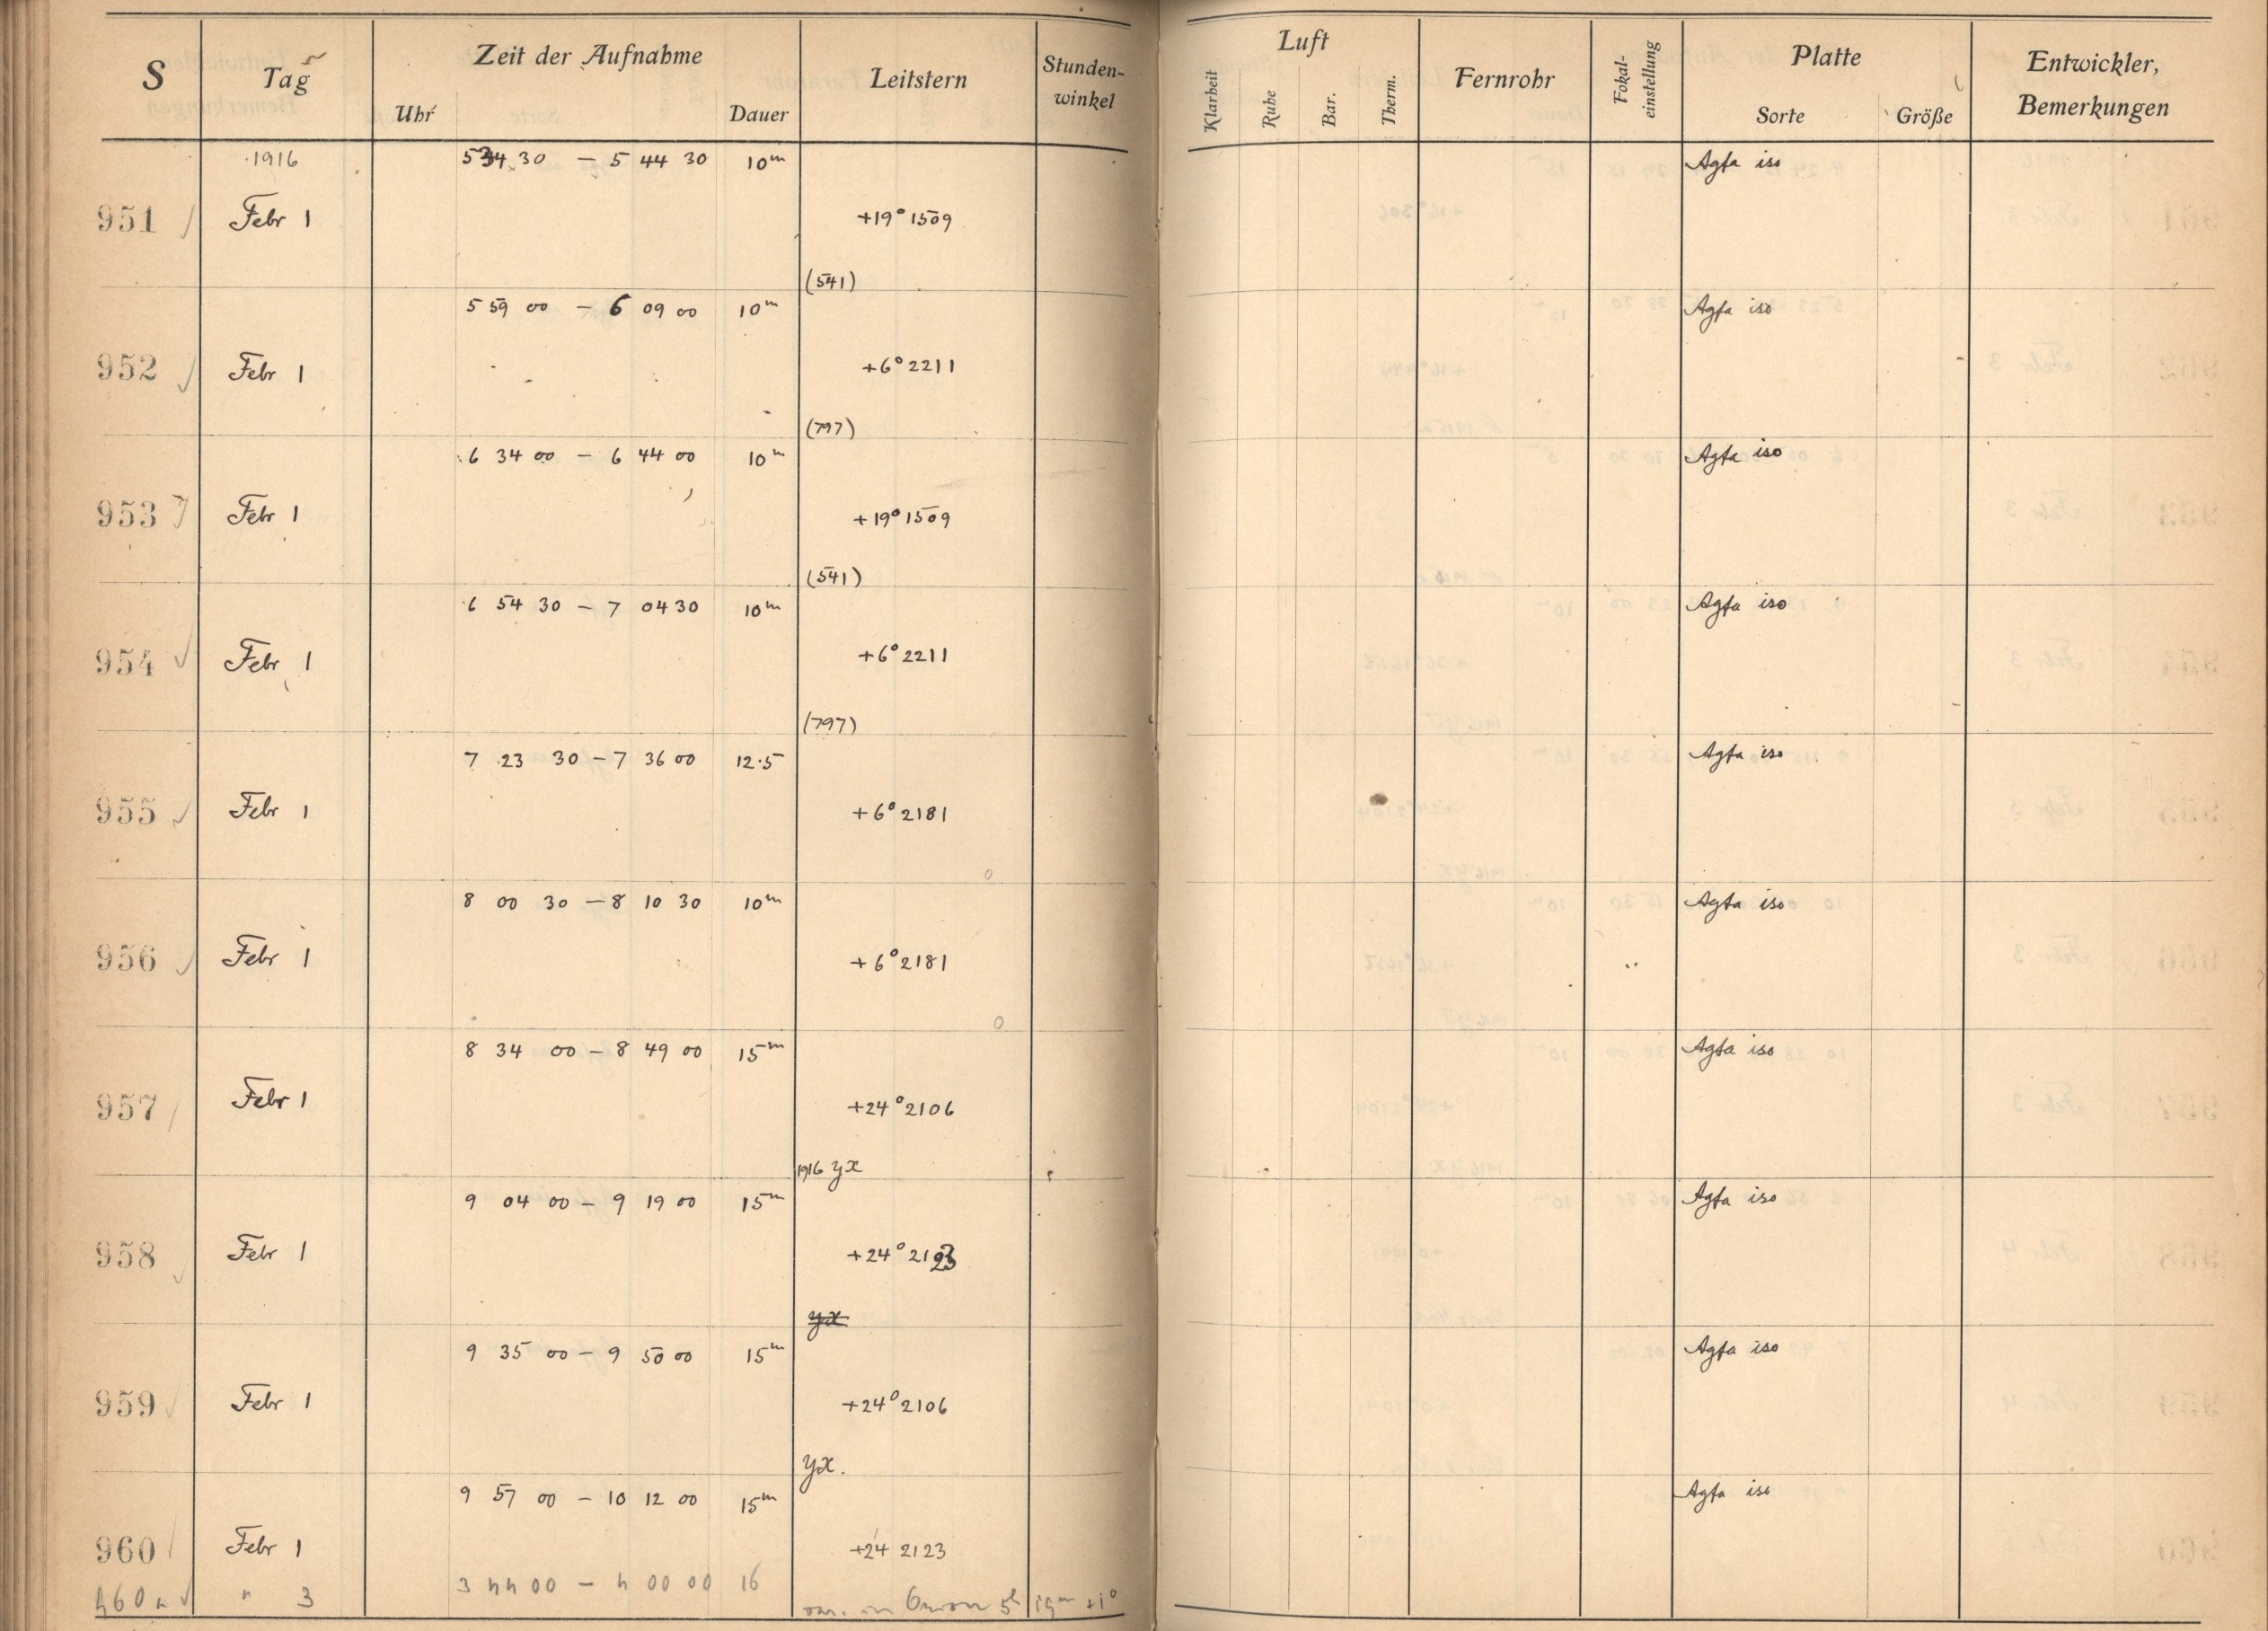 S Tag Zeit der Aufnahme Leitstern Stunden-winkel Luft Fernrohr Fokal-einstellung Platte Entwickler, Bemerkungen
Uhr Dauer Klarheit Ruhe Bar. Therm. Sorte Größe
1916 5 34 30 – 5 44 30 10m Agfa iso
951 Febr 1 +19° 1509
(541)
5 59 00 – 6 09 00 10m Agfa iso
952 Febr 1 +6° 2211
(797)
6 34 00 – 6 44 00 10m Agfa iso
953 Febr 1 +19° 1509
(541)
6 54 30 – 7 04 30 10m Agfa iso
954 Febr 1 +6° 2211
(797)
7 23 30 – 7 36 00 12.5 Agfa iso
955 Febr 1 +6° 2181
8 00 30 – 8 10 30 10m Agfa iso
956 Febr 1 +6° 2181
8 34 00 – 8 49 00 15m Agfa iso
957 Febr 1 +24° 2106
1916 yx
9 04 00 – 9 19 00 15m Agfa iso
958 Febr 1 +24° 2123
yx
9 35 00 – 9 50 00 15m Agfa iso
959 Febr 1 +24° 2106
yx.
9 57 00 – 10 12 00 15m Agfa iso
960 Febr 1 +24 2123
" 3 3 44 00 – 4 00 00 16 in Orion 5h 19m +1°